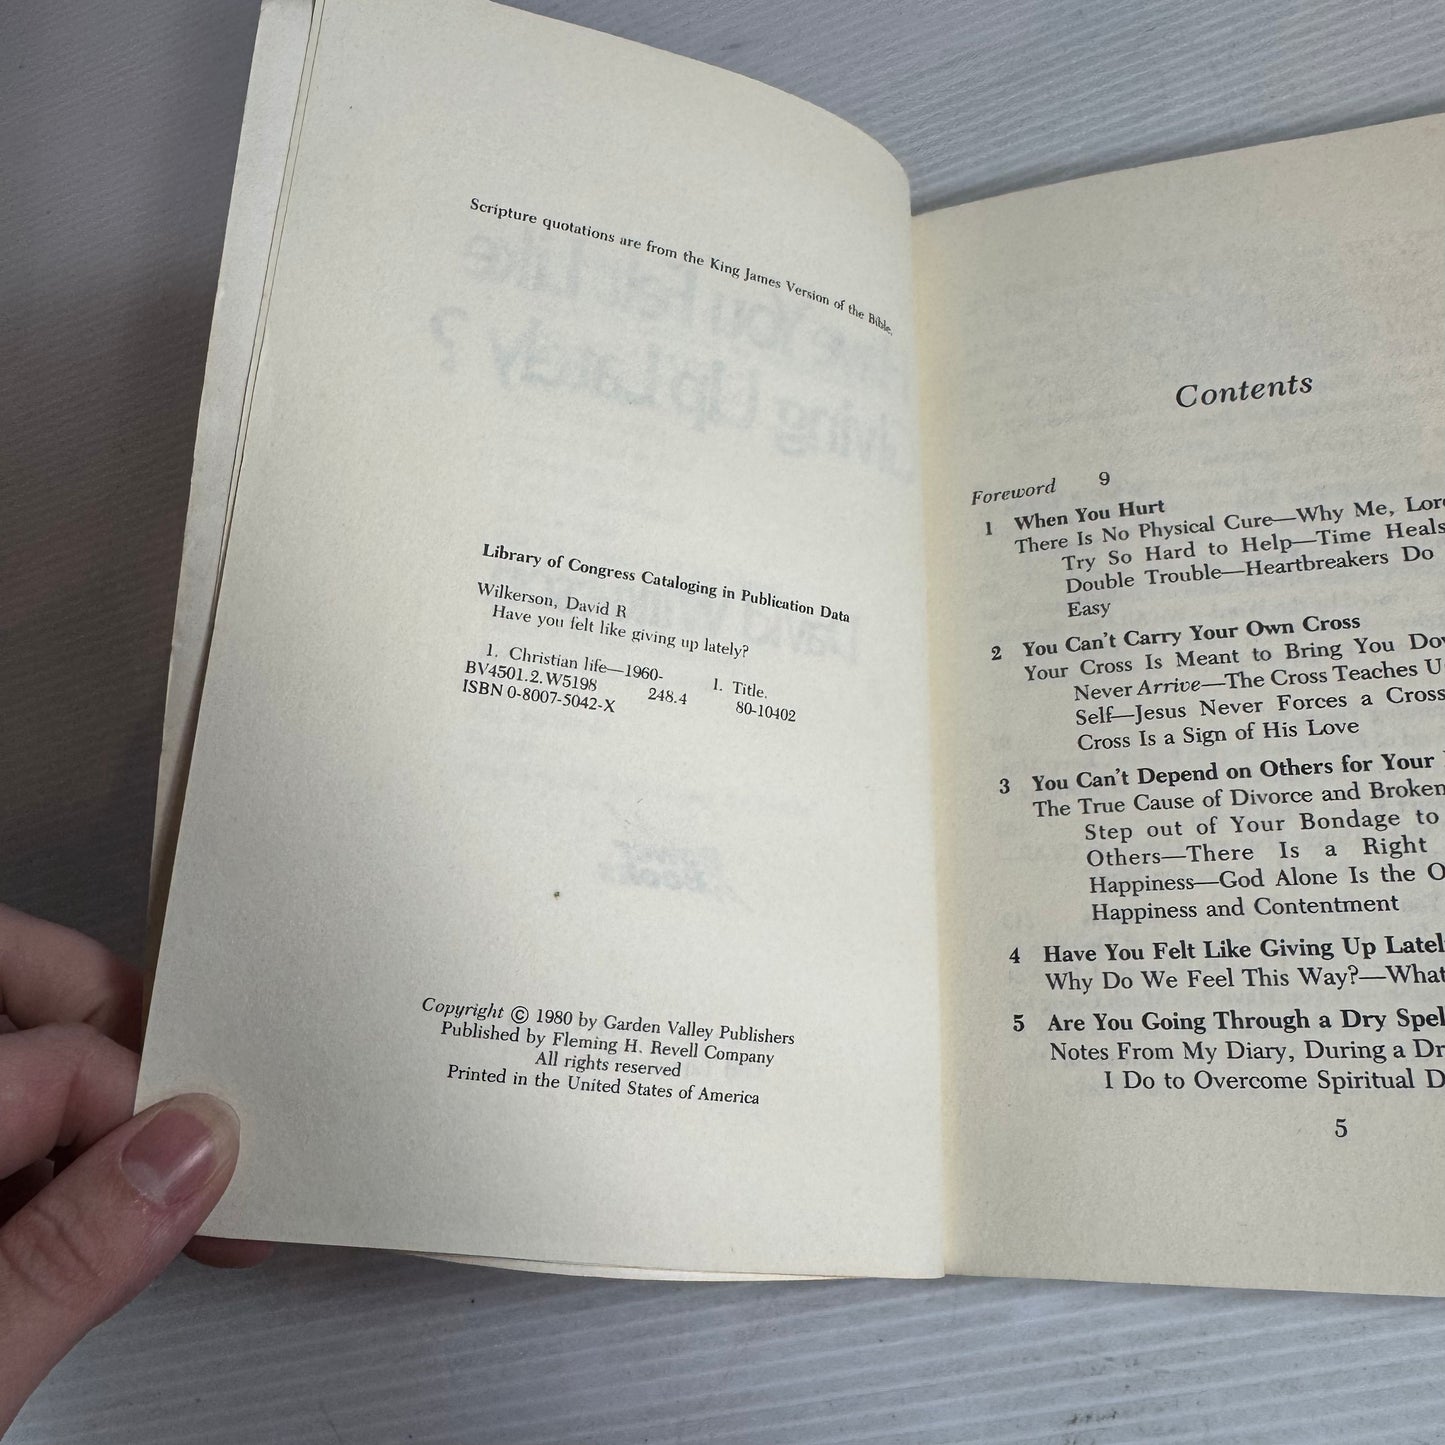 Scripture quotations are from the King James Version of the Bible.
Library of Congress Cataloging in Publication Data
Wilkerson, David R
Have you felt like giving up lately?
1. Christian life—1960-   I. Title.
BV4501.2.W5198   248.4   80-10402
ISBN 0-8007-5042-X
Copyright © 1980 by Garden Valley Publishers
Published by Fleming H. Revell Company
All rights reserved
Printed in the United States of America
Contents
Foreword 9
1 When You Hurt
There Is No Physical Cure—Why Me,
Try So Hard to Help—Time Heals
Double Trouble—Heartbreakers Do
Easy
2 You Can't Carry Your Own Cross
Your Cross Is Meant to Bring You
Never Arrive—The Cross Teaches
Self—Jesus Never Forces a Cross
Cross Is a Sign of His Love
3 You Can't Depend on Others for Your
The True Cause of Divorce and Broken
Step out of Your Bondage to
Others—There Is a Right
Happiness—God Alone Is the
Happiness and Contentment
4 Have You Felt Like Giving Up
Why Do We Feel This Way?—What
5 Are You Going Through a Dry
Notes From My Diary, During a
I Do to Overcome Spiritual
5